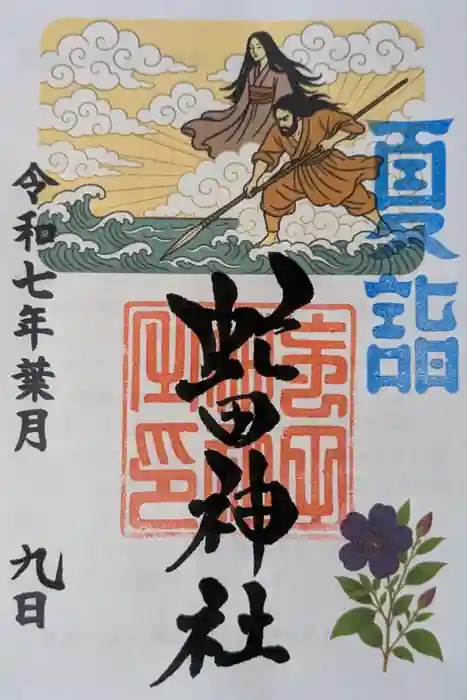 夏詣
蛇田神社
令和七年葉月
九日